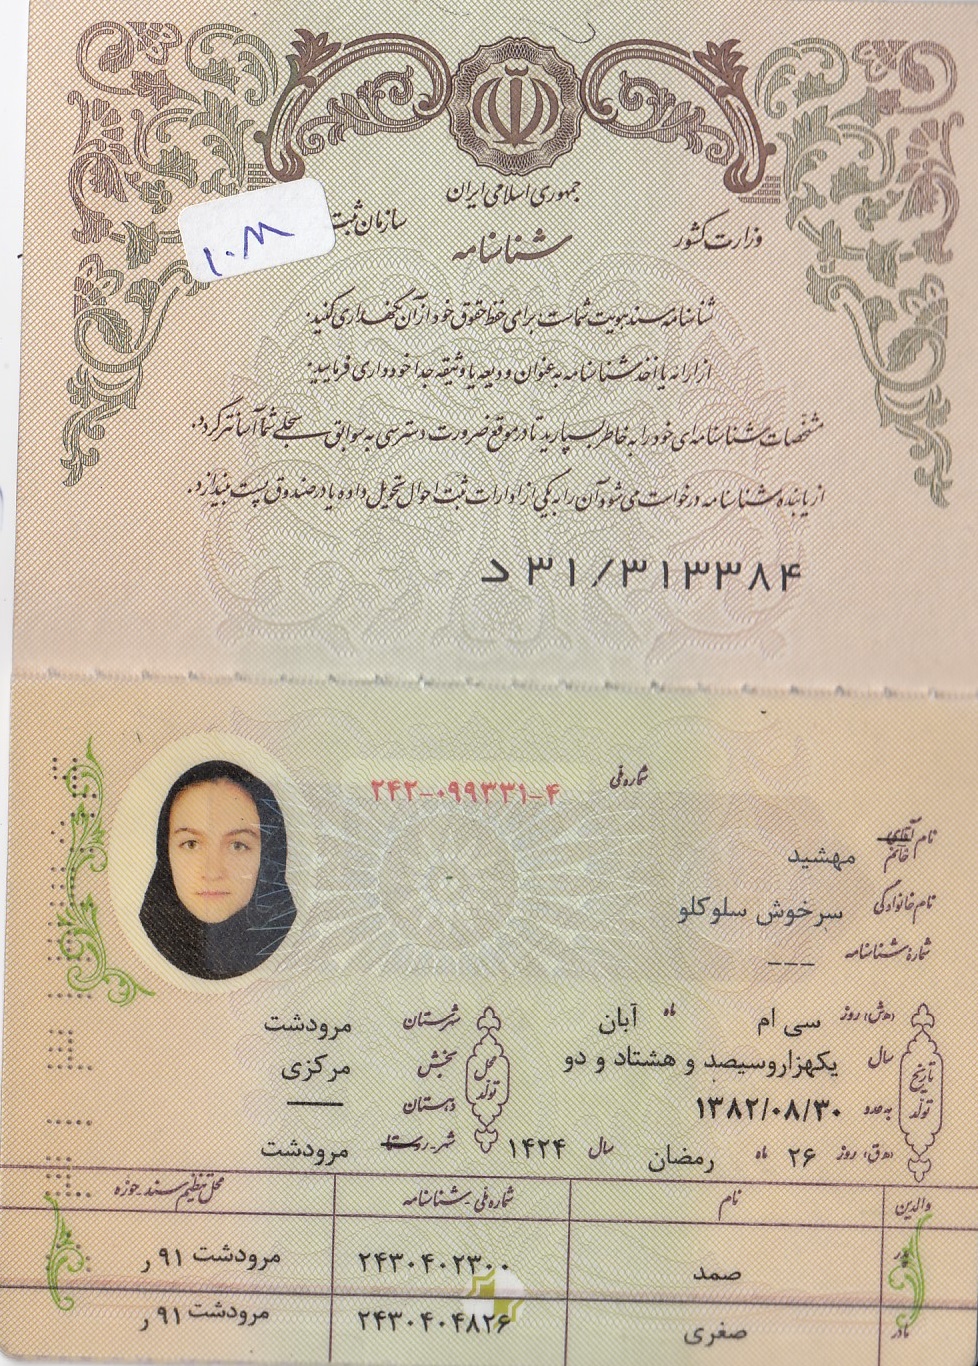 جمهوری اسلامی ایران
وزارت کشور
سازمان ثبت
شناسنامه
۱۰M
شناسنامه سند هویت شماست، برای حفظ حقوق خود از آن نگهداری کنید.
از ارائه یا اخذ شناسنامه به عنوان ودیعه یا وثیقه جداً خودداری فرمایید.
مشخصات شناسنامه‌ای خود را به خاطر بسپارید تا در موقع ضرورت دسترسی به سوابق سجلی شما آسانتر گردد.
از یابنده شناسنامه درخواست می‌شود آن را به یکی از ادارات ثبت احوال تحویل داده یا در صندوق پست بیندازد.
د ۳۱/۳۱۳۳۸۴
شماره ملی ۲۴۲-۰۹۹۳۳۱-۴
نام آقای خانم مهشید
نام خانوادگی سرخوش سلوکلو
شماره شناسنامه ---
تاریخ تولد
(ه‍.ش) روز سی ام ماه آبان
سال یکهزاروسیصد و هشتاد و دو
به عدد ۱۳۸۲/۰۸/۳۰
(ه‍.ق) روز ۲۶ ماه رمضان سال ۱۴۲۴
محل تولد
شهرستان مرودشت
بخش مرکزی
دهستان ——
شهر-روستا مرودشت
والدین نام شماره ملی-شناسنامه محل تنظیم سند-حوزه
پدر صمد ۲۴۳۰۴۰۲۳۰۰ مرودشت ۹۱ر
مادر صغری ۲۴۳۰۴۰۴۸۲۶ مرودشت ۹۱ر